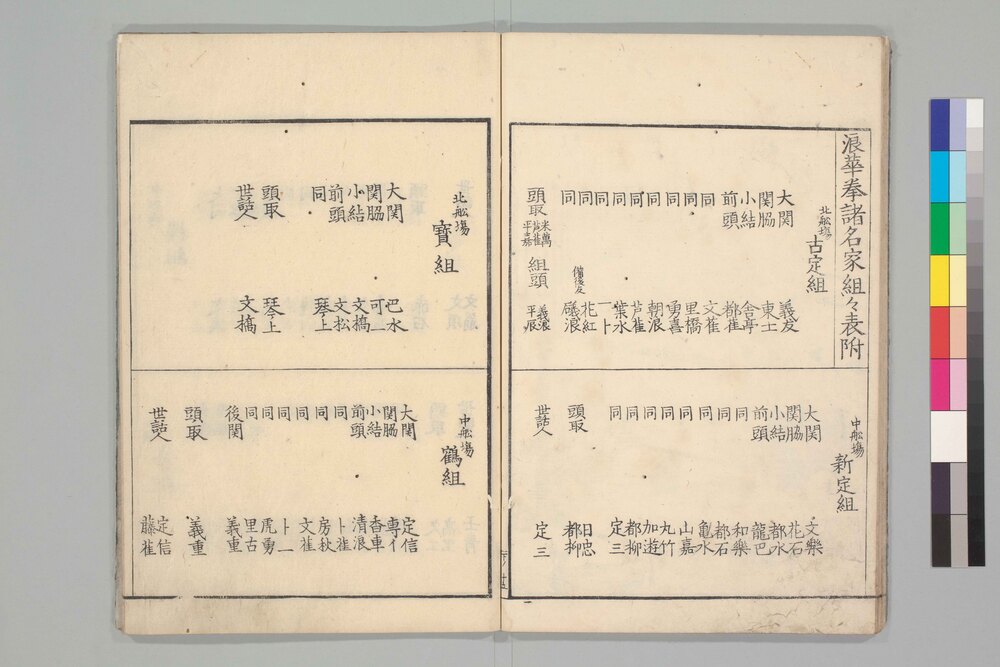 浪華拳諸名家組々表附
北舩場
古定組
大関 義友
関脇 東士
小結 舎亭
前頭 都雀
同 文雀
同 里橋
同 勇喜
同 朝浪
同 芦雀
同 葉水
同 一卜
同 備後友 花紅
同 礒浪
頭取 米萬 芦雀 平嘉
組頭 義浪 平辰
中舩場
新定組
大関 文樂
関脇 花石
小結 都水
前頭 龍巴
同 和樂
同 都石
同 亀水
同 山嘉
同 丸竹
同 加遊
同 都柳
同 定三
頭取 日忠 都柳
世話人 定三
北舩塲
寶組
大関 巴水
関脇 可一
小結 文摛
前頭 文松
同 琴上
頭取 琴上
世話人 文摛
中舩塲
鶴組
大関 定信
関脇 専イ
小結 杳車
前頭 清浪
同 卜雀
同 房秋
同 文雀
同 卜二
同 虎勇
同 里古
後関 義重
頭取 義重
世話人 定信 藤雀